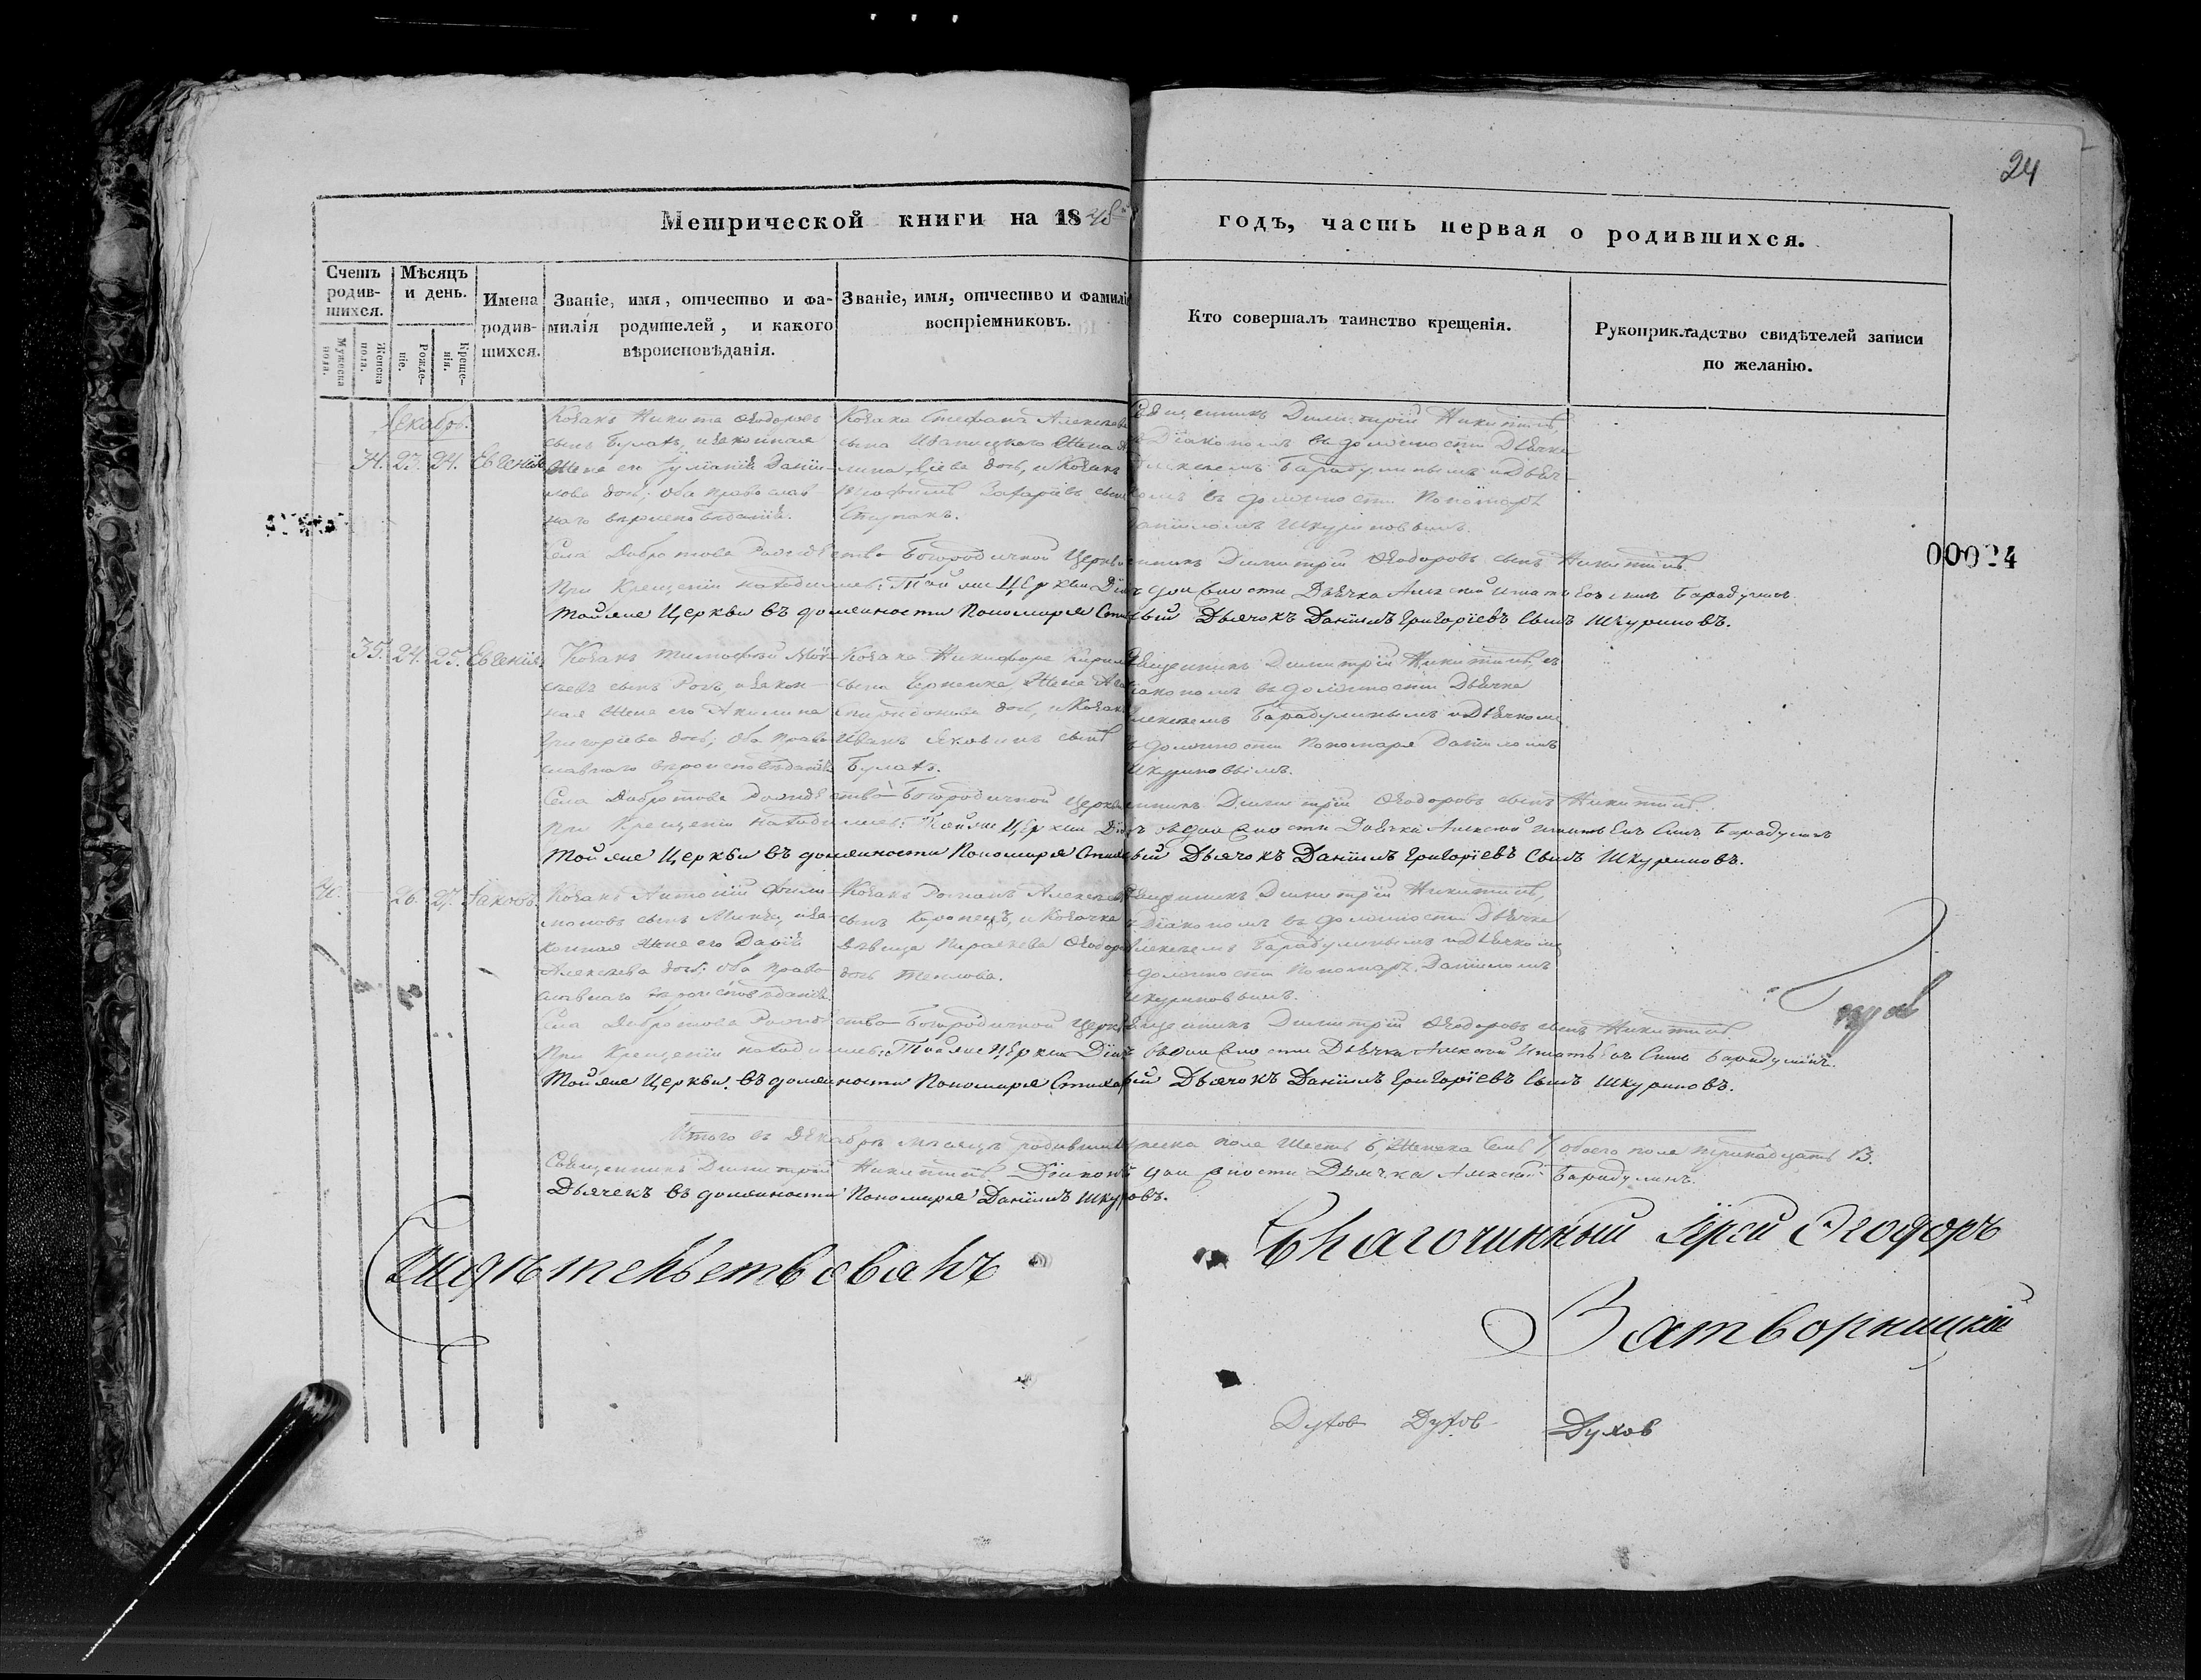 24
Метрической книги на 1848й годъ, часть первая о родившихся.
Счетъ родив- шихся.
Мѣсяцъ и день.
Имена родив- шихся.
Званіе, имя, отчество и фа- милія родителей, и какого вѣроисповѣданія.
Званіе, имя, отчество и фамилі воспріемниковъ.
Кто совершалъ таинство крещенія.
Рукоприкладство свидѣтелей записи по желанію.
Мужеска пола.
Женска пола.
Рожде- ніе.
Креще- ніи.
Декабрь.
34. 23. 24. Евгенія
Козакъ Никита Ѳеодоровъ
сынъ Булахъ, и законная
жена его Іуліанія Даніи-
лова дочь; оба православ
наго вѣроисповѣданія.
Козака Стефана Алексѣева
сына Иваницкаго жена
дочь, и Козакъ
Захаріевъ сынъ
Ступакъ.
Священникъ Димитрій Никитинъ,
Діакономъ въ должности Дьячка
Алексѣемъ Барадулинымъ и Дьяч-
комъ въ должности Пономаря
Даніиломъ Шкуриновымъ.
Села Добротова Рождество-Богородичной Церкви Димитрій Ѳеодоровъ сынъ Никитинъ.
При Крещеніи находились: Той же Церкви Діаконъ въ должности Дьячка Алексѣй Игнатьевъ сынъ Барадулинъ.
Той же Церкви въ должности Пономаря Дьячокъ Даніилъ Григоріевъ Сынъ Шкуриновъ.
35. 24. 25. Евгенія
Козакъ Тимофей Мои-
сѣевъ сынъ Рогъ, и закон-
ная жена его Акилина
Григоріева дочь; оба право
славнаго вѣроисповѣданія.
Козака Никифора Кирил
сына жена
Спиридонова дочь, и Козакъ
Иванъ Яковлевъ сынъ
Булахъ.
Священникъ Димитрій Никитинъ, съ
Діакономъ въ должности Дьячка
Алексѣемъ Барадулинымъ и Дьячкомъ
въ должности Пономаря Даніиломъ
Шкуриновымъ.
Села Добротова Рождество-Богородичной Церкви Димитрій Ѳеодоровъ сынъ Никитинъ.
При Крещеніи находились: Той же Церкви Діаконъ въ должности Дьячка Алексѣй Игнатьевъ Сынъ Барадулинъ
Той же Церкви въ должности Пономаря Дьячокъ Даніилъ Григоріевъ Сынъ Шкуриновъ.
26. 27. Іаковъ.
Козакъ Антоній Фили-
моновъ сынъ и за-
конная жена его Дарія
Алексѣева дочь; оба право-
славнаго вѣроисповѣданія.
Козакъ Романъ Алексѣевъ
сынъ и Козачка
дѣвица Параскева Ѳеодоро
дочь Теплова.
Священникъ Димитрій Никитинъ,
съ Діакономъ въ должности Дьячка
Алексѣемъ Барадулинымъ и Дьячкомъ
въ должности Пономаря Даніиломъ
Шкуриновымъ.
Села Добротова Рождество-Богородичной Церкви Священникъ Димитрій Ѳеодоровъ сынъ Никитинъ.
При Крещеніи находились: Той же Церкви Діаконъ въ должности Дьячка Алексѣй Игнатьевъ Сынъ Барадулинъ.
Той же Церкви въ должности Пономаря Дьячокъ Даніилъ Григоріевъ Сынъ Шкуриновъ.
Итого въ Декабрѣ мѣсяцѣ родившихся мужеска пола шесть 6, женска семь 7, обоего пола тринадцать 13.
Священникъ Димитрій Никитинъ. Діаконъ въ должности Дьячка Алексѣй Барадулинъ.
Дьячекъ въ должности Пономаря Даніилъ Шкуриновъ.
Свидѣтельствовалъ
Благочинный Іерей Ѳеодоръ
Затворницкій
Духов Духов Духов
00024